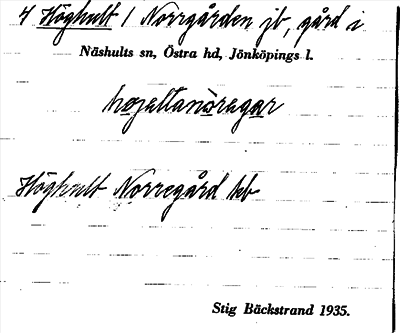 4 Höghult 1 Norrgården jb, gård i
Näshults sn, Östra hd, Jönköpings l.
Höghult Norregård kb
Stig Bäckstrand 1935.